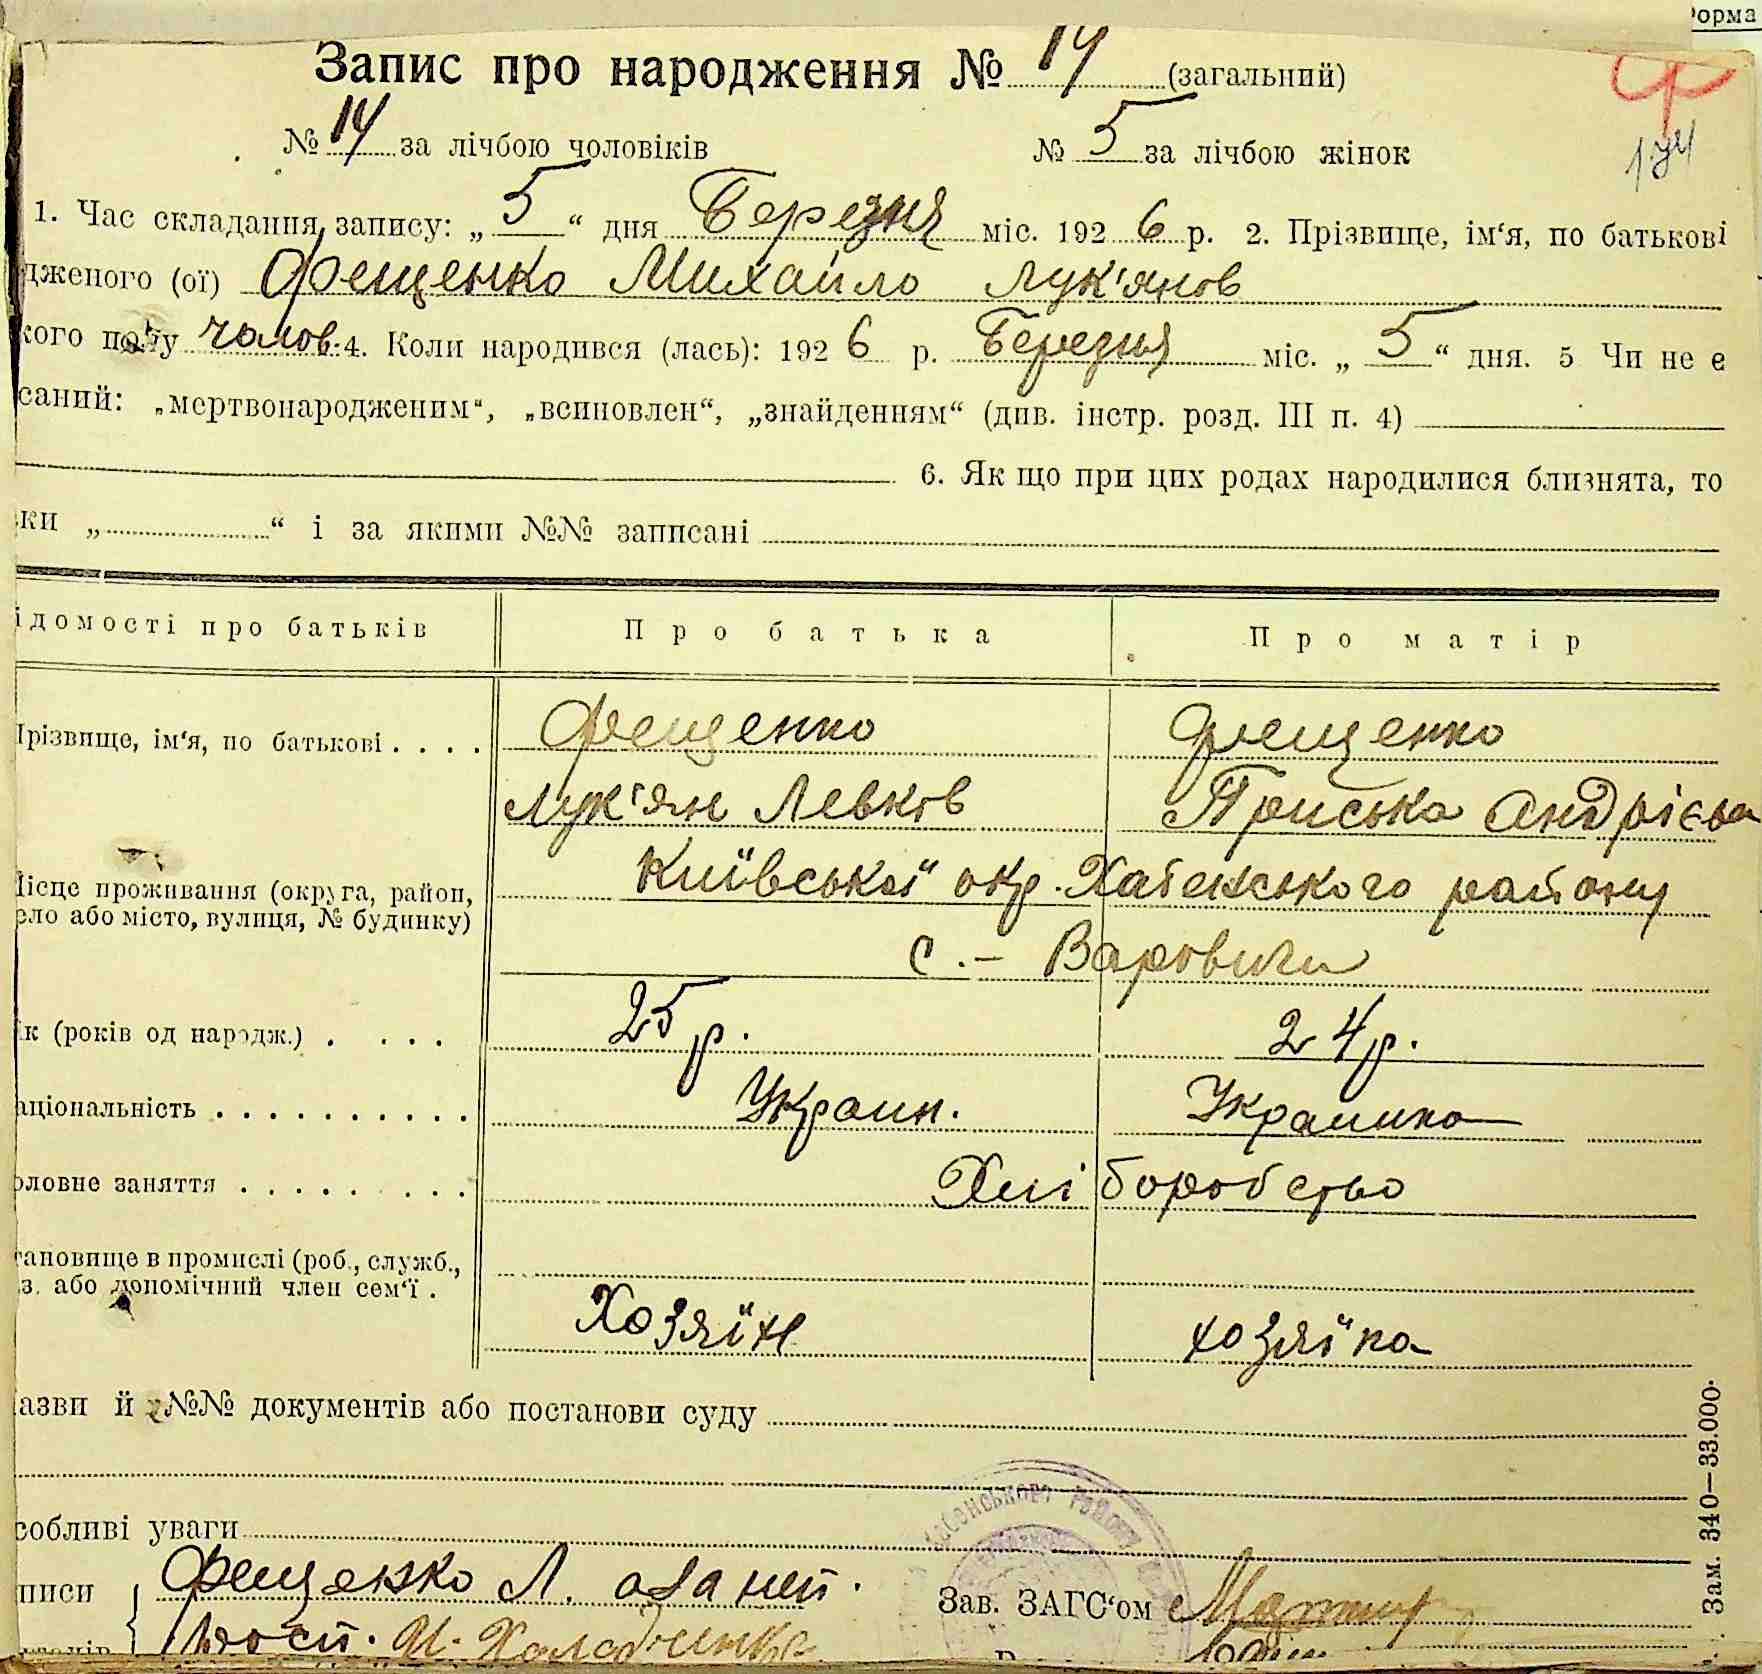 Форма
Запис про народження № 14 (загальний)
№ 14 за лічбою чоловіків № 5 за лічбою жінок
174
1. Час складання запису: „ 5 “ дня Березня міс. 192 6 р. 2. Прізвище, ім‘я, по батькові
дженого (ої) Фещенко Михайло Лук'янов
кого полу чолов. 4. Коли народився (лась): 192 6 р. Березня міс. „ 5 “ дня. 5 Чи не є
саний: „мертвонародженим“, „всиновлен“, „знайденням“ (див. інстр. розд. III п. 4)
6. Як що при цих родах народилися близнята, то
ки „ “ і за якими №№ записані
ідомості про батьків Про батька Про матір
Прізвище, ім‘я, по батькові . . . . Фещенко Фещенко
Лук'ян Левков Приська Андрієва
Місце проживання (округа, район, Київської окр. Хабенського району
ело або місто, вулиця, № будинку)
с. – Варовичи
ік (років од народж.) . . . . 25 р. 24 р.
аціональність . . . . . . . . . . Украин. Украинка
оловне заняття . . . . . . . . . Хліборобство
тановище в промислі (роб., служб.,
з. або допомічний член сем‘ї . Хозяїн хозяїка
азви й №№ документів або постанови суду
собливі уваги
Хабенського району
писи Фещенко Л. Зав. ЗАГС‘ом
Зам. 340—33.000.